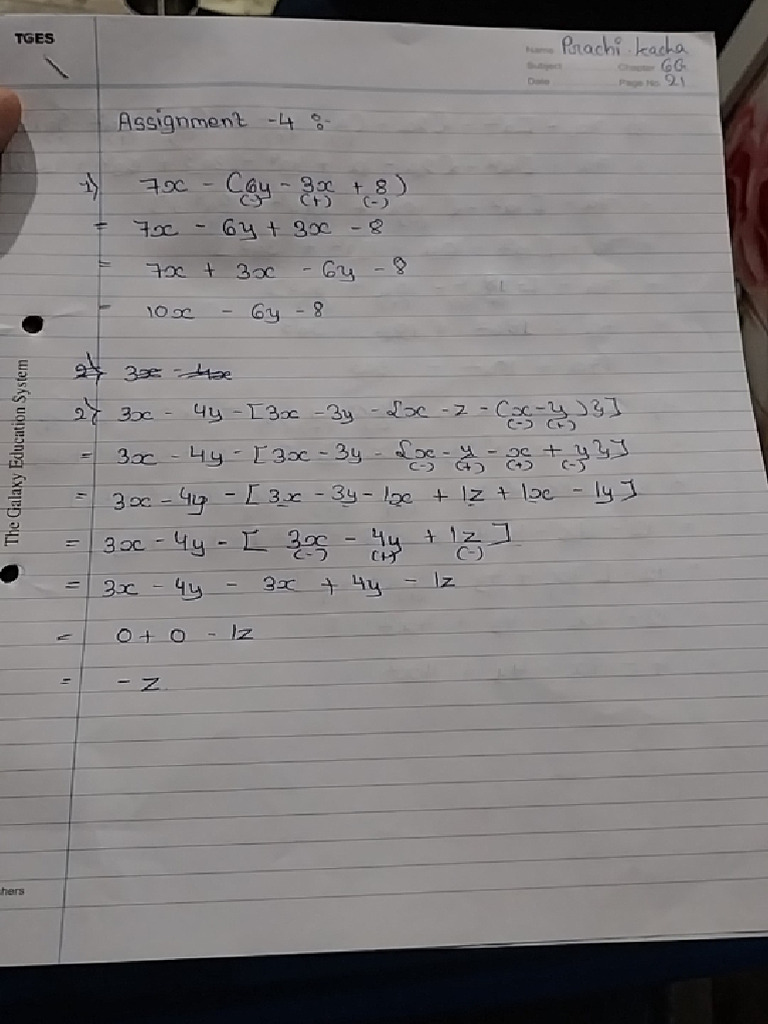 TGES
Name Prachi . kacha
Subject Chapter 6G
Date Page No. 21
Assignment -4 :-
1) 7x - (6y - 3x + 8)
(-) (+) (-)
= 7x - 6y + 3x - 8
= 7x + 3x - 6y - 8
= 10x - 6y - 8
2) 3x - 4x
2) 3x - 4y - [3x - 3y - {x - z - (x - y)}]
(-) (+)
= 3x - 4y - [3x - 3y - {x - y - x + y}]
(-) (+) (+) (-)
= 3x - 4y - [3x - 3y - 1x + 1z + 1x - 1y]
= 3x - 4y - [3x - 4y + 1z]
(-) (+) (-)
= 3x - 4y - 3x + 4y - 1z
= 0 + 0 - 1z
= - z
The Galaxy Education System
hers